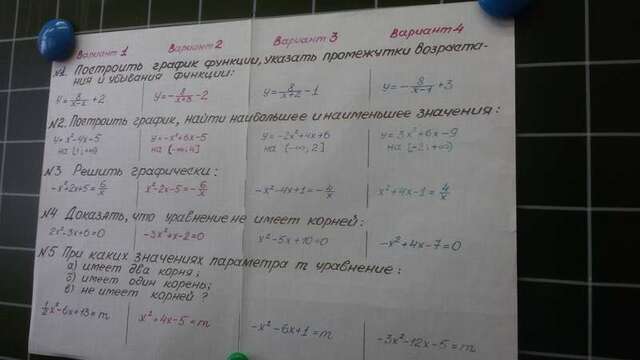 Вариант 1 Вариант 2 Вариант 3 Вариант 4
№1. Построить график функции, указать промежутки возраста-
ния и убывания функции:
y=8/(x-2)+2 y=-8/(x+3)-2 y=8/(x+2)-1 y=-8/(x-1)+3
№2. Построить график, найти наибольшее и наименьшее значения:
y=x²-4x-5 y=-x²+6x-5 y=-2x²+4x+6 y=3x²+6x-9
на [1;+∞) на (-∞;4] на (-∞;2] на [-2;+∞)
№3 Решить графически:
-x²-2x+5=6/x x²-2x-5=-6/x -x²-4x+1=-4/x x²+4x-1=4/x
№4 Доказать, что уравнение не имеет корней:
2x²-3x+6=0 -3x²+x-2=0 x²-5x+10=0 -x²+4x-7=0
№5 При каких значениях параметра m уравнение:
а) имеет два корня;
б) имеет один корень;
в) не имеет корней?
½x²-6x+13=m x²+4x-5=m -x²-6x+1=m -3x²-12x-5=m